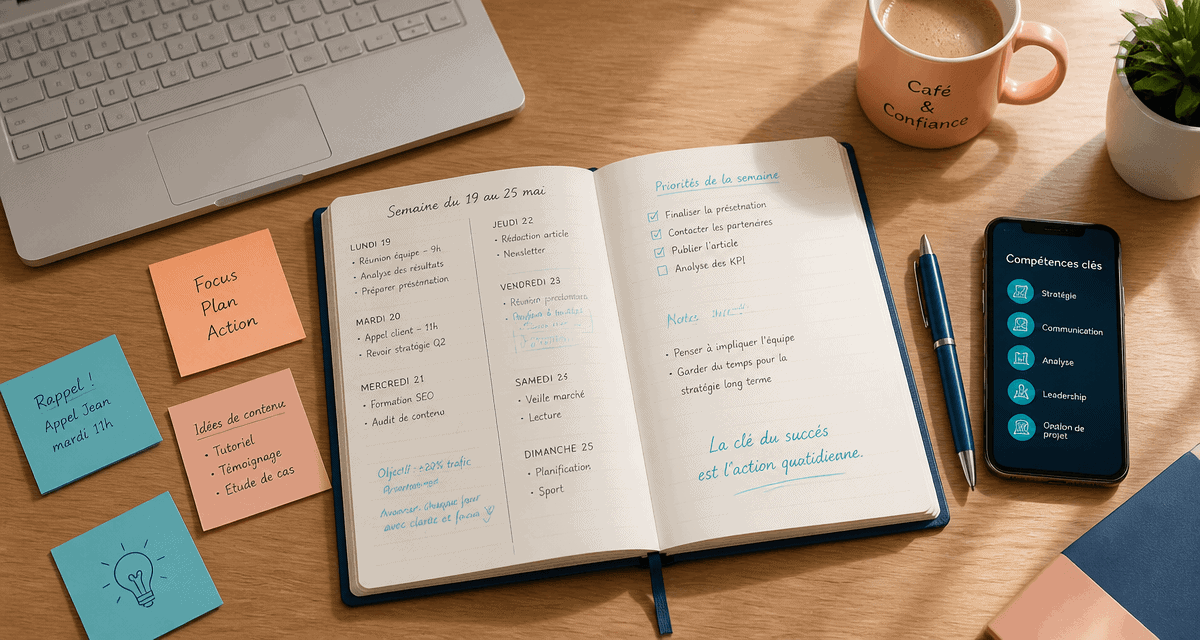 Café
&
Confiance
Semaine du 19 au 25 mai
LUNDI 19
• Réunion équipe – 9h
• Analyse des résultats
• Préparer présentation
MARDI 20
• Appel client – 11h
• Revoir stratégie Q2
MERCREDI 21
• Formation SEO
• Audit de contenu
Objectif : +20% trafic
avec clarté et focus
JEUDI 22
• Rédaction article
• Newsletter
VENDREDI 23
• Réunion
SAMEDI
• Veille marché
• Lecture
DIMANCHE 25
• Planification
• Sport
Priorités de la semaine
☑ Finaliser la présetnation
☑ Contacter les partenéires
☑ Publier l'article
☐ Analyse des KPI
• Penser à impliquer l'équipe
• Garder du temps pour la
stratégie long terme
La clé du succés
est l'action quotidienne.
Focus
Plan
Action
Rappel !
Appel Jean
mardi 11h
Idées de contenu
• Tutoriel
• Témoignage
• Etude de cas
Compétences clés
Stratégie
Communication
Analyse
Leadership
de
projet